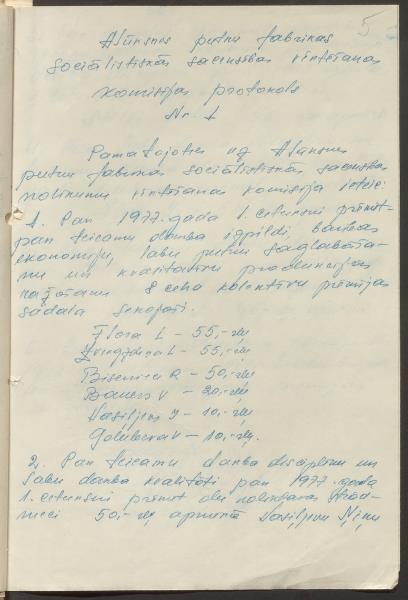 5
Alūksnes putnu fabrikas
sociālistiskās sacensības vērtēšanas
komisijas protokols
Nr. 1
Pamatojoties uz Alūksnes
putnu fabrikas sociālistiskās sacensības
nolikumu vērtēšanas komisija ieteic:
1. Par 1977. gada 1. ceturksni prēmēt
par teicamu darba izpildi, barības
ekonomiju, labu putnu saglabāša-
nu un kvalitatīvu produkcijas
ražošanu 8 ceha kolektīvu prēmijas
sadala sekojoši.
Flora L – 55,- rbļ
L – 55,- rbļ
R – 50,- rbļ
V – 20,- rbļ
Vasiļjevs J – 10,- rbļ
Golubeva V – 10,- rbļ.
2. Par teicamu darba disciplīnu un
labu darba kvalitāti par 1977. gada
1. ceturksni prēmēt
50,- rbļ apmērā Vasiļjevu Ņinu